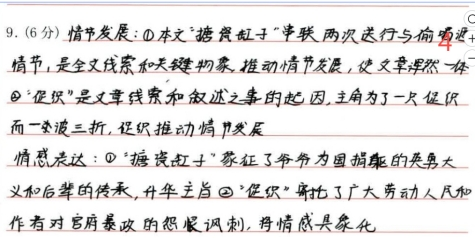 9.(6分) 情节发展:①本文"搪瓷缸子"串联两次送行与偷喝酒
情节,是全文线索和关键物象,推动情节发展,使文章浑然一体
②"促织"是文章线索和叙述之事的起因,主角为了一只促织
而一波三折,促织推动情节发展
情感表达:①"搪瓷缸子"象征了爷爷为国捐躯的英勇大
义和后辈的传承,升华主旨②"促织"寄托了广大劳动人民和
作者对官府暴政的怨恨讽刺,将情感具象化
4